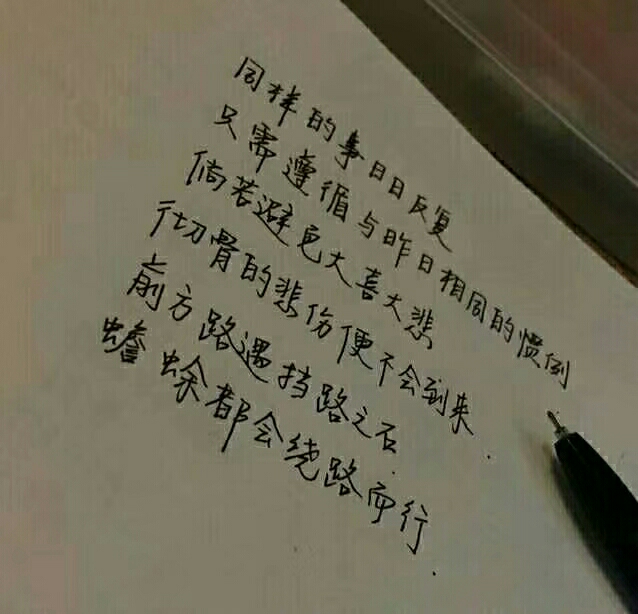 同样的事日日反复
只需遵循与昨日相同的惯例
倘若避免大喜大悲
彻骨的悲伤便不会到来.
前方路遇挡路之石.
蟾蜍都会绕路而行.